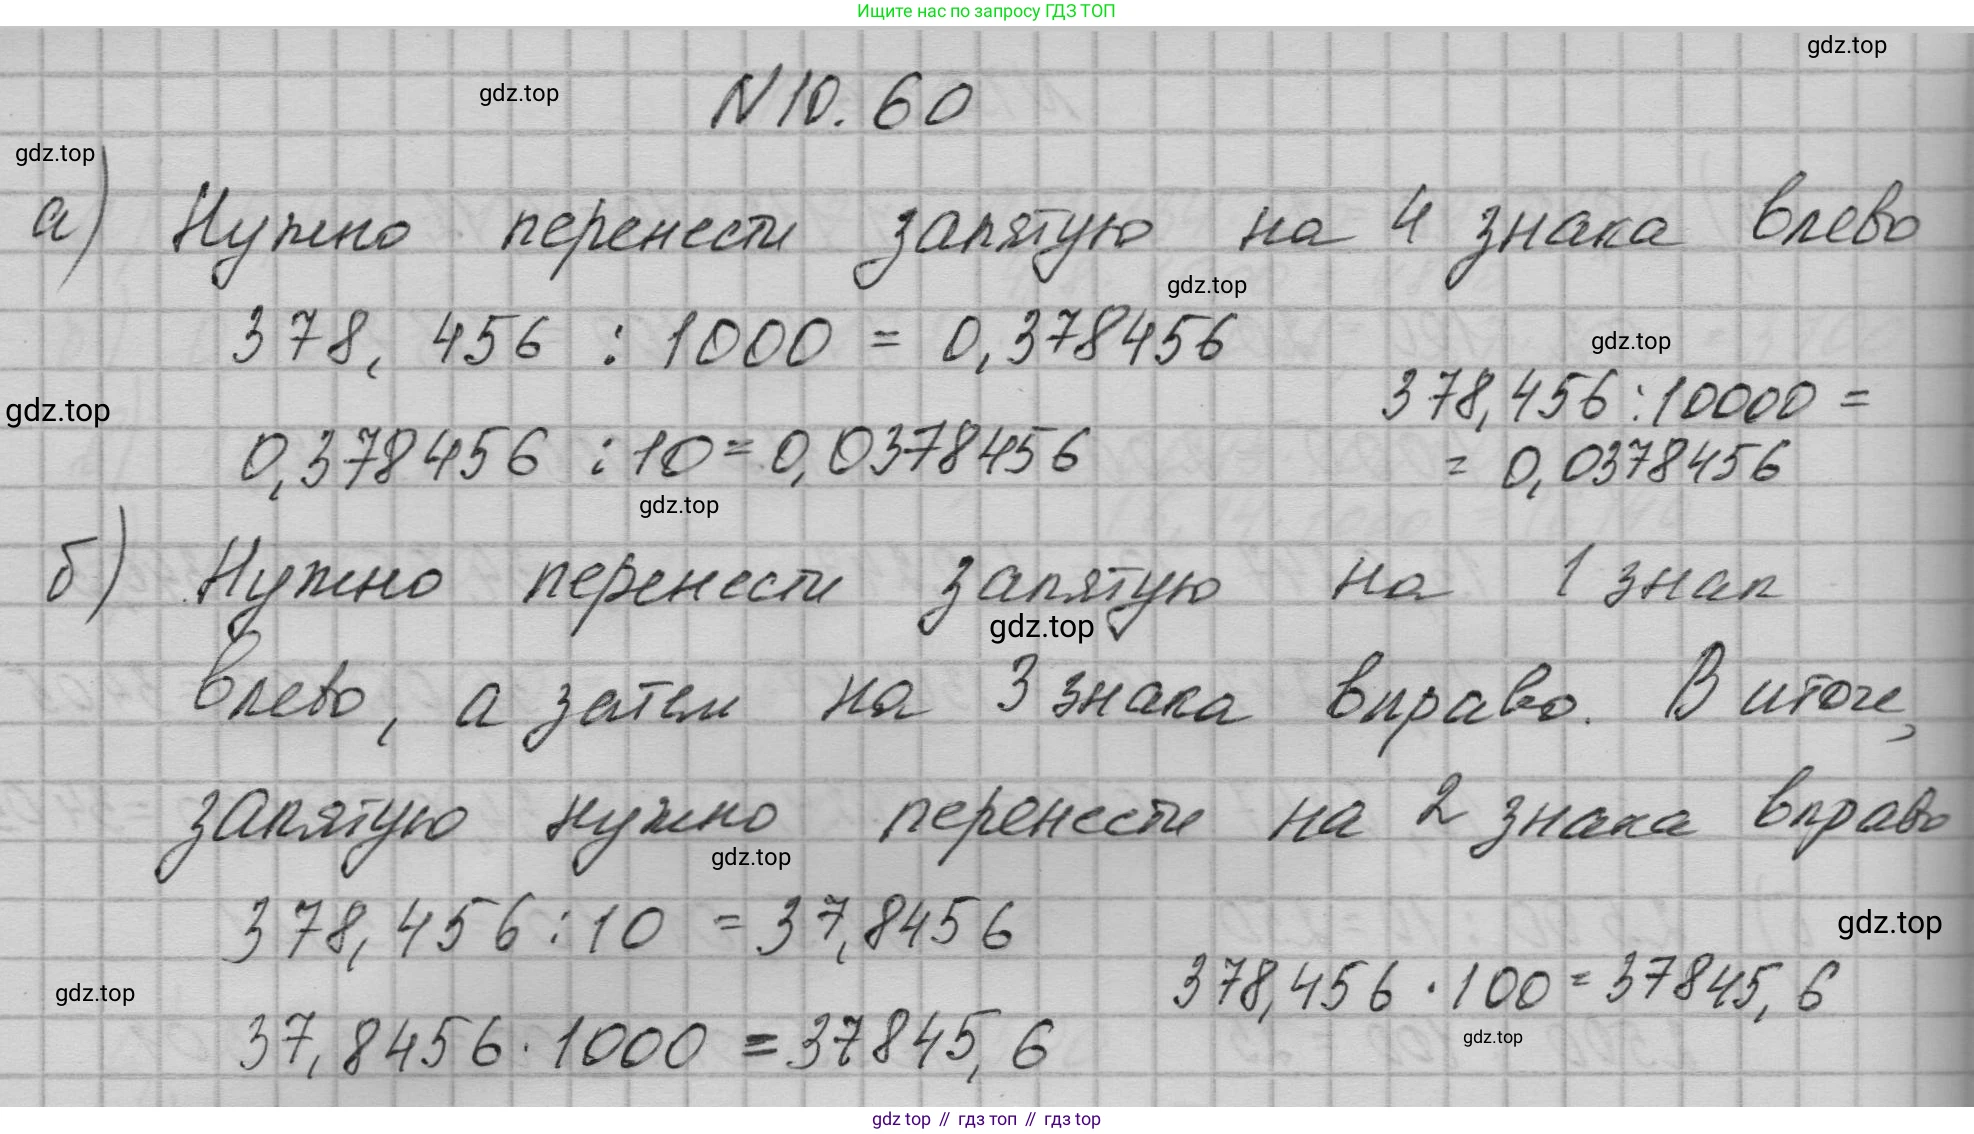 Ищите нас по запросу ГДЗ ТОП
gdz.top
gdz.top
N 10.60
gdz.top
а) Нужно перенести запятую на 4 знака влево
gdz.top
378,456 : 1000 = 0,378456
gdz.top
378,456 : 10000 =
= 0,0378456
gdz.top
0,378456 : 10 = 0,0378456
gdz.top
б) Нужно перенести запятую на 1 знак
gdz.top
влево, а затем на 3 знака вправо. В итоге,
запятую нужно перенести на 2 знака вправо
gdz.top
378,456 : 10 = 37,8456
gdz.top
378,456 · 100 = 37845,6
gdz.top
37,8456 · 1000 = 37845,6
gdz.top
gdz top // гдз топ // гдз top